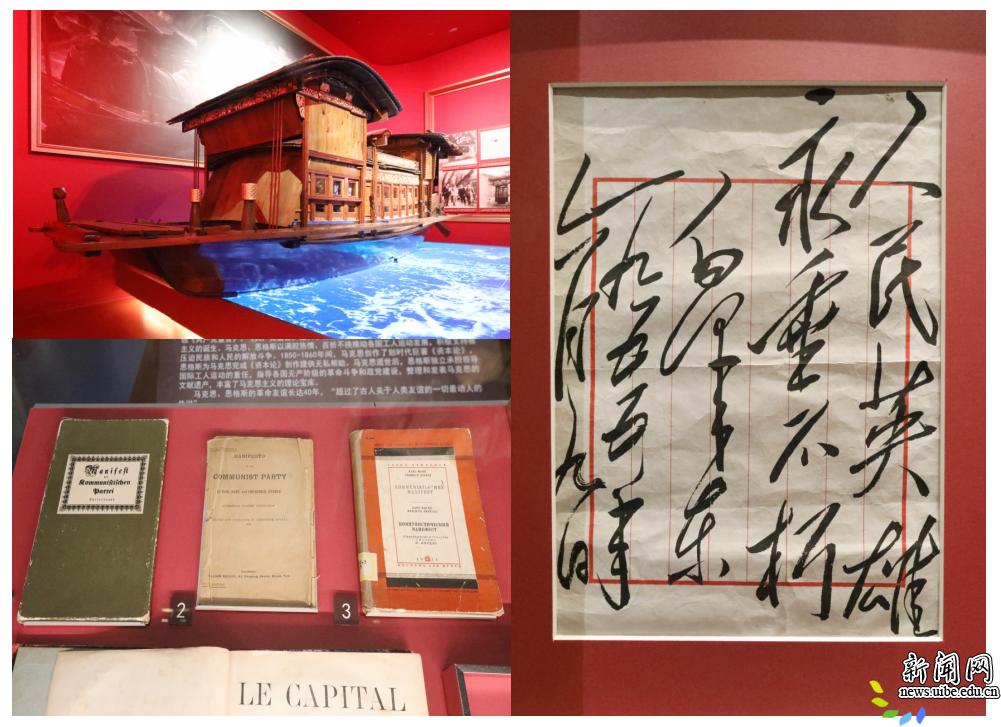 主义的诞生。马克思、恩格斯以满腔热情、百折不挠推动各国工人运动发展，积极支持被
压迫民族和人民的解放斗争。1850-1860年间，马克思创作了划时代巨著《资本论》。
恩格斯为马克思完成《资本论》创作提供无私帮助。马克思逝世后，恩格斯独立承担指导
国际工人运动的重任，指导各国无产阶级的革命斗争和政党建设，整理和发表马克思的
文献遗产，丰富了马克思主义的理论宝库。
马克思、恩格斯的革命友谊长达40年，“超过了古人关于人类友谊的一切最动人的
Manifest
Kommunistischen
Partei
MANIFESTO
OF THE
COMMUNIST PARTY
KARL MARX
MANIFEST
КОММУНИСТИЧЕСКИЙ
МАНИФЕСТ
2
3
LE CAPITAL
人民英雄
永垂不朽
毛泽东
一九五五年
六月九日
新闻网
news.uibe.edu.cn